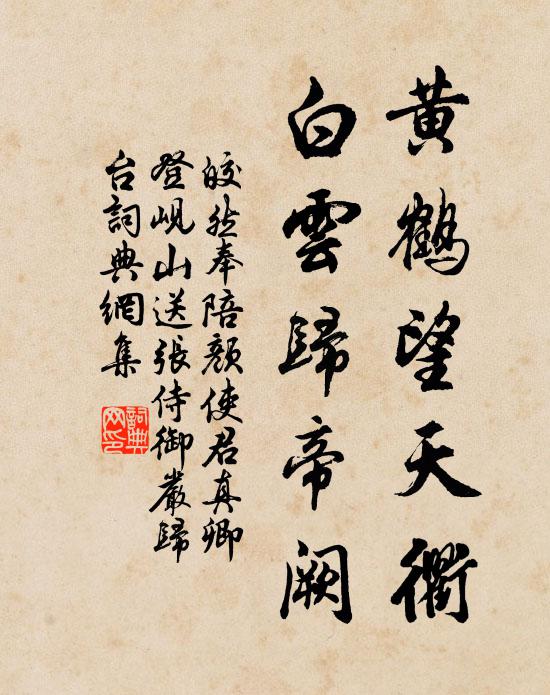 黄鶴望天衢
白雲歸帝闕
皎然奉陪顏使君真卿
登峴山送張侍御嚴歸
台詞典網集
詞典
网印